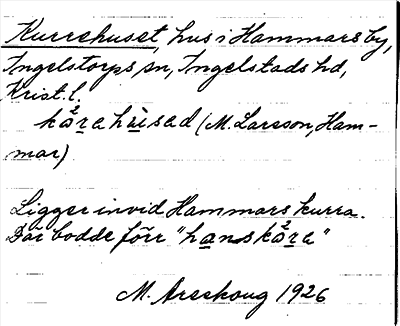 Kurrehuset, hus i Hammars by,
Ingelstorps sn, Ingelstads hd,
Krist. l.
kåra hùsad (M. Larsson, Ham-
mar)
Ligger invid Hammars kurra.
Där bodde förr "hans kåra"
M. Areskoug 1926